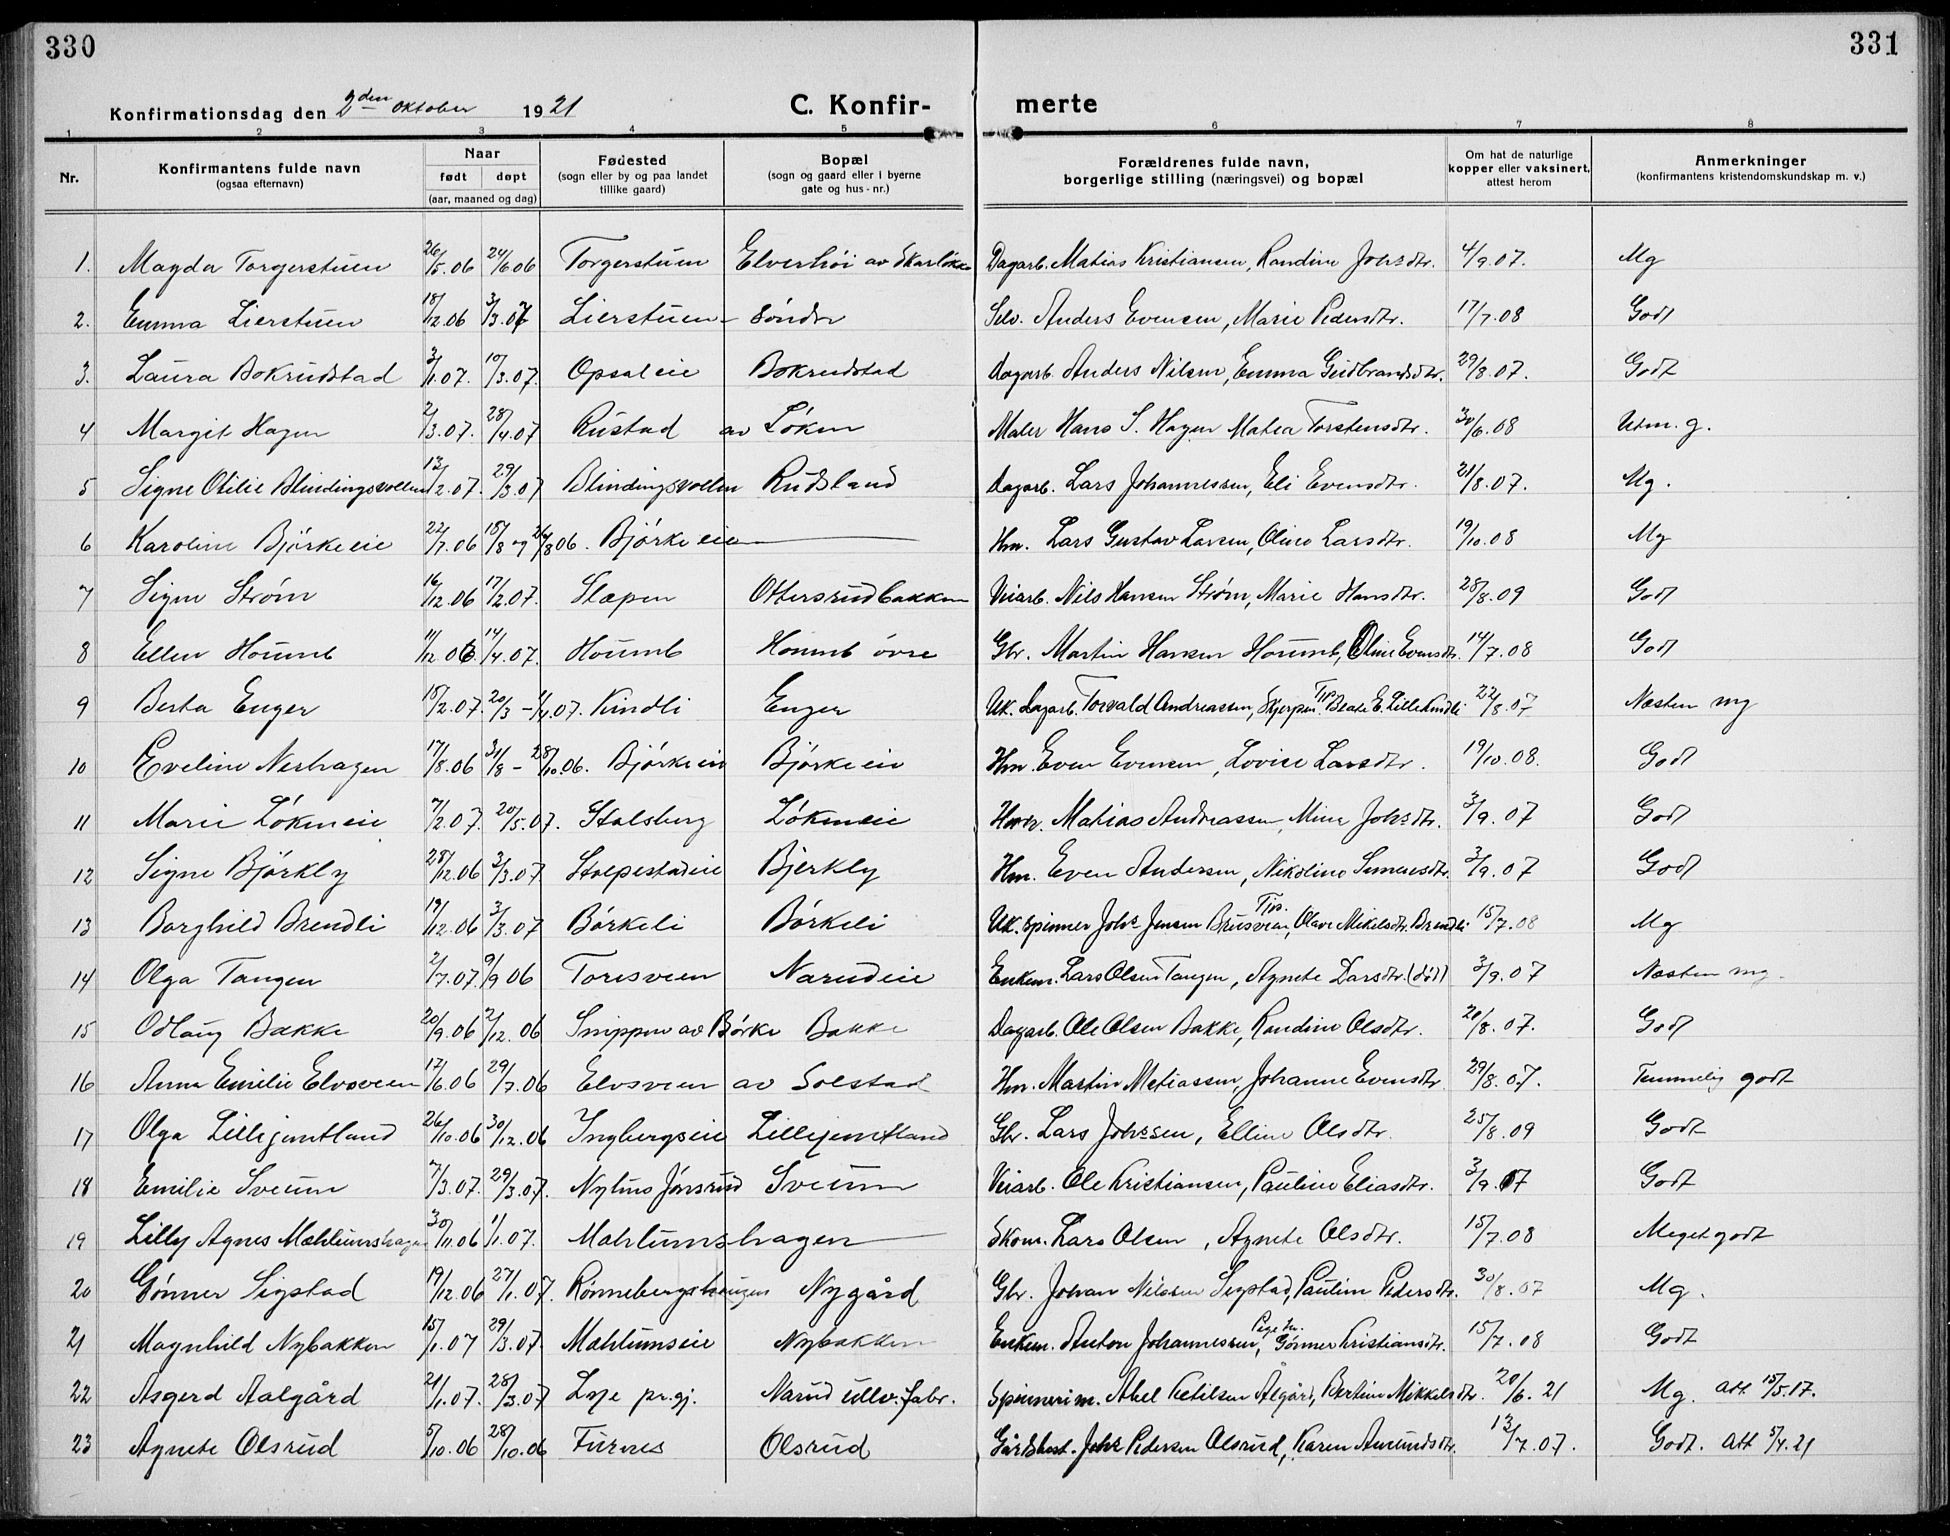 330
331
Konfirmationsdag den 2den oktober 1921
C. Konfir-
merte
1 2 3 4 5 6 7 8
Nr.
Konfirmantens fulde navn
(ogsaa efternavn)
Naar
født døpt
(aar, maaned og dag)
Fødested
(sogn eller by og paa landet
tillike gaard)
Bopæl
(sogn og gaard eller i byerne
gate og hus-nr.)
Forældrenes fulde navn,
borgerlige stilling (næringsvei) og bopæl
Om hat de naturlige
kopper eller vaksinert,
attest herom
Anmerkninger
(konfirmantens kristendomskundskap m. v.)
1. Magda Torgerstuen 26/5.06 24/6 06 Torgerstuen Elverhöi av Skarlöken Dagarb. Matias Kristiansen, Randine Johsdtr. 4/9.07. Mg
2. Emma Lierstuen 18/2.06 3/3.07 Lierstuen - Söndr Selv. Anders Evensen, Marie Pedersdtr. 17/7.08 Godt
3. Laura Bokrudstad 3/1.07. 10/3.07. Opsaleie Bokrudstad Dagarb. Anders Nilsen, Emma Gudbrandsdtr. 29/8.07. Godt
4 Margit Hagen 2/3.07. 28/4.07 Rustad av Löken Maler Hans S. Hagen Matea Torstensdtr. 30/6.08 Utm. g.
5 Signe Otilie Blindingsvollen 13/2.07. 29/3.07 Blindingsvollen Rudsland Dagarb. Lars Johannessen, Eli Evensdtr. 21/8.07. Mg.
6 Karoline Björkeeie 22/7.06 18/8 og 26/8 06. Björkeeie Hm. Lars Gustav Larsen, Oline Larsdtr. 19/10.08 Mg
7 Signe Ström 16/12.06 17/2.07. Slæpen Ottersrudbakken Veiarb. Nils Hansen Strøm, Marie Hansdtr. 28/8.09 Godt
8 Ellen Houmb 11/12.06 14/4.07. Houmb Houmb övre Gbr. Martin Hansen Houmb, Oline Evensdtr. 14/7.08 Godt
9 Berta Enger 18/2.07. 20/3 - 1/4.07. Kindli Enger Uk. Dagarb. Torvald Andreassen, Skjerpen. Tjp. Beate E. Lillekindli 22/8.07 Næsten mg
10 Eveline Neshagen 17/8.06 31/8 - 28/10.06. Björkeeie Björkeeie Hm. Even Evensen, Lovise Larsdtr. 19/10.08. Godt
11 Marie Lökeneie 7/2.07. 20/5.07. Stalsberg Lökeneie Matias Andreassen, Mina Johsdtr. 3/9.07 Godt
12 Signe Björkly 28/12.06 3/3.07 Stolpestadeie Bjerkly Hm. Even Andersen, Nikoline Simensdtr. 3/9.07 Godt
13 Borghild Brendli 19/12.06 3/3.07 Börkeli Börkeli Uk. Spinner Johs Jensen Brusveen, Tjp. Olave Mikelsdtr. Brendli 15/7.08 Mg
14 Olga Tangen 2/7.07. 9/9 06 Toresveen Narudeie Enkem. Lars Olsen Tangen, Agnete Larsdtr. (död) 3/9.07 Næsten mg.
15 Odlaug Bakke 20/9.06 2/12.06 Snippen av Börke Bakke Dagarb. Ole Olsen Bakke, Randine Olsdtr. 20/8.07. Godt
16 Anna Emilie Elvsveen 17/6.06 29/7.06 Elvsveen av Solstad Hm. Martin Matiassen, Johanne Evensdtr. 29/8.07. Temmelig godt
17 Olga Lillejemtland 26/10.06 30/12.06 Ingbergseie Lillejemtland Gbr. Lars Johssen, Elline Olsdtr. 25/8.09 Godt
18 Emilie Sveum 7/3.07. 29/3.07. Nylins Jönsrud Sveum Veiarb. Ole Kristiansen, Pauline Eliasdtr. 3/9.07 Godt
19 Lilly Agnes Mæhlumshagen 30/11.06 1/1.07. Mæhlumshagen Skom. Lars Olsen, Agnete Olsdtr. 15/7.08 Meget godt
20 Gönner Sigstad 19/12.06 27/1.07. Rönnebergshaugen Nygård Gbr. Johan Nilssen Sigstad, Pauline Pedersdtr. 30/8.07 Mg.
21 Magnhild Nybakken 15/1.07 29/3.07. Mæhlumseie Nybakken Enkem. Anton Johannessen, Pige Gönner Kristiansdtr. 15/7.08 Godt
22 Asgerd Aalgård 21/1.07. 28/3.07 Lye pr.gj. Narud ullv. fabr. Spinnerim. Abel Ketilsen Ålgård, Bertine Mikkelsdtr. 20/6.21 Mg. Att 15/5.17.
23 Agnete Olsrud 5/10.06 28/10.06 Furnes Olsrud Gårdbest. Johs Pedersen Olsrud, Karen Amundsdtr. 13/7.07. Godt. Att 5/4.21